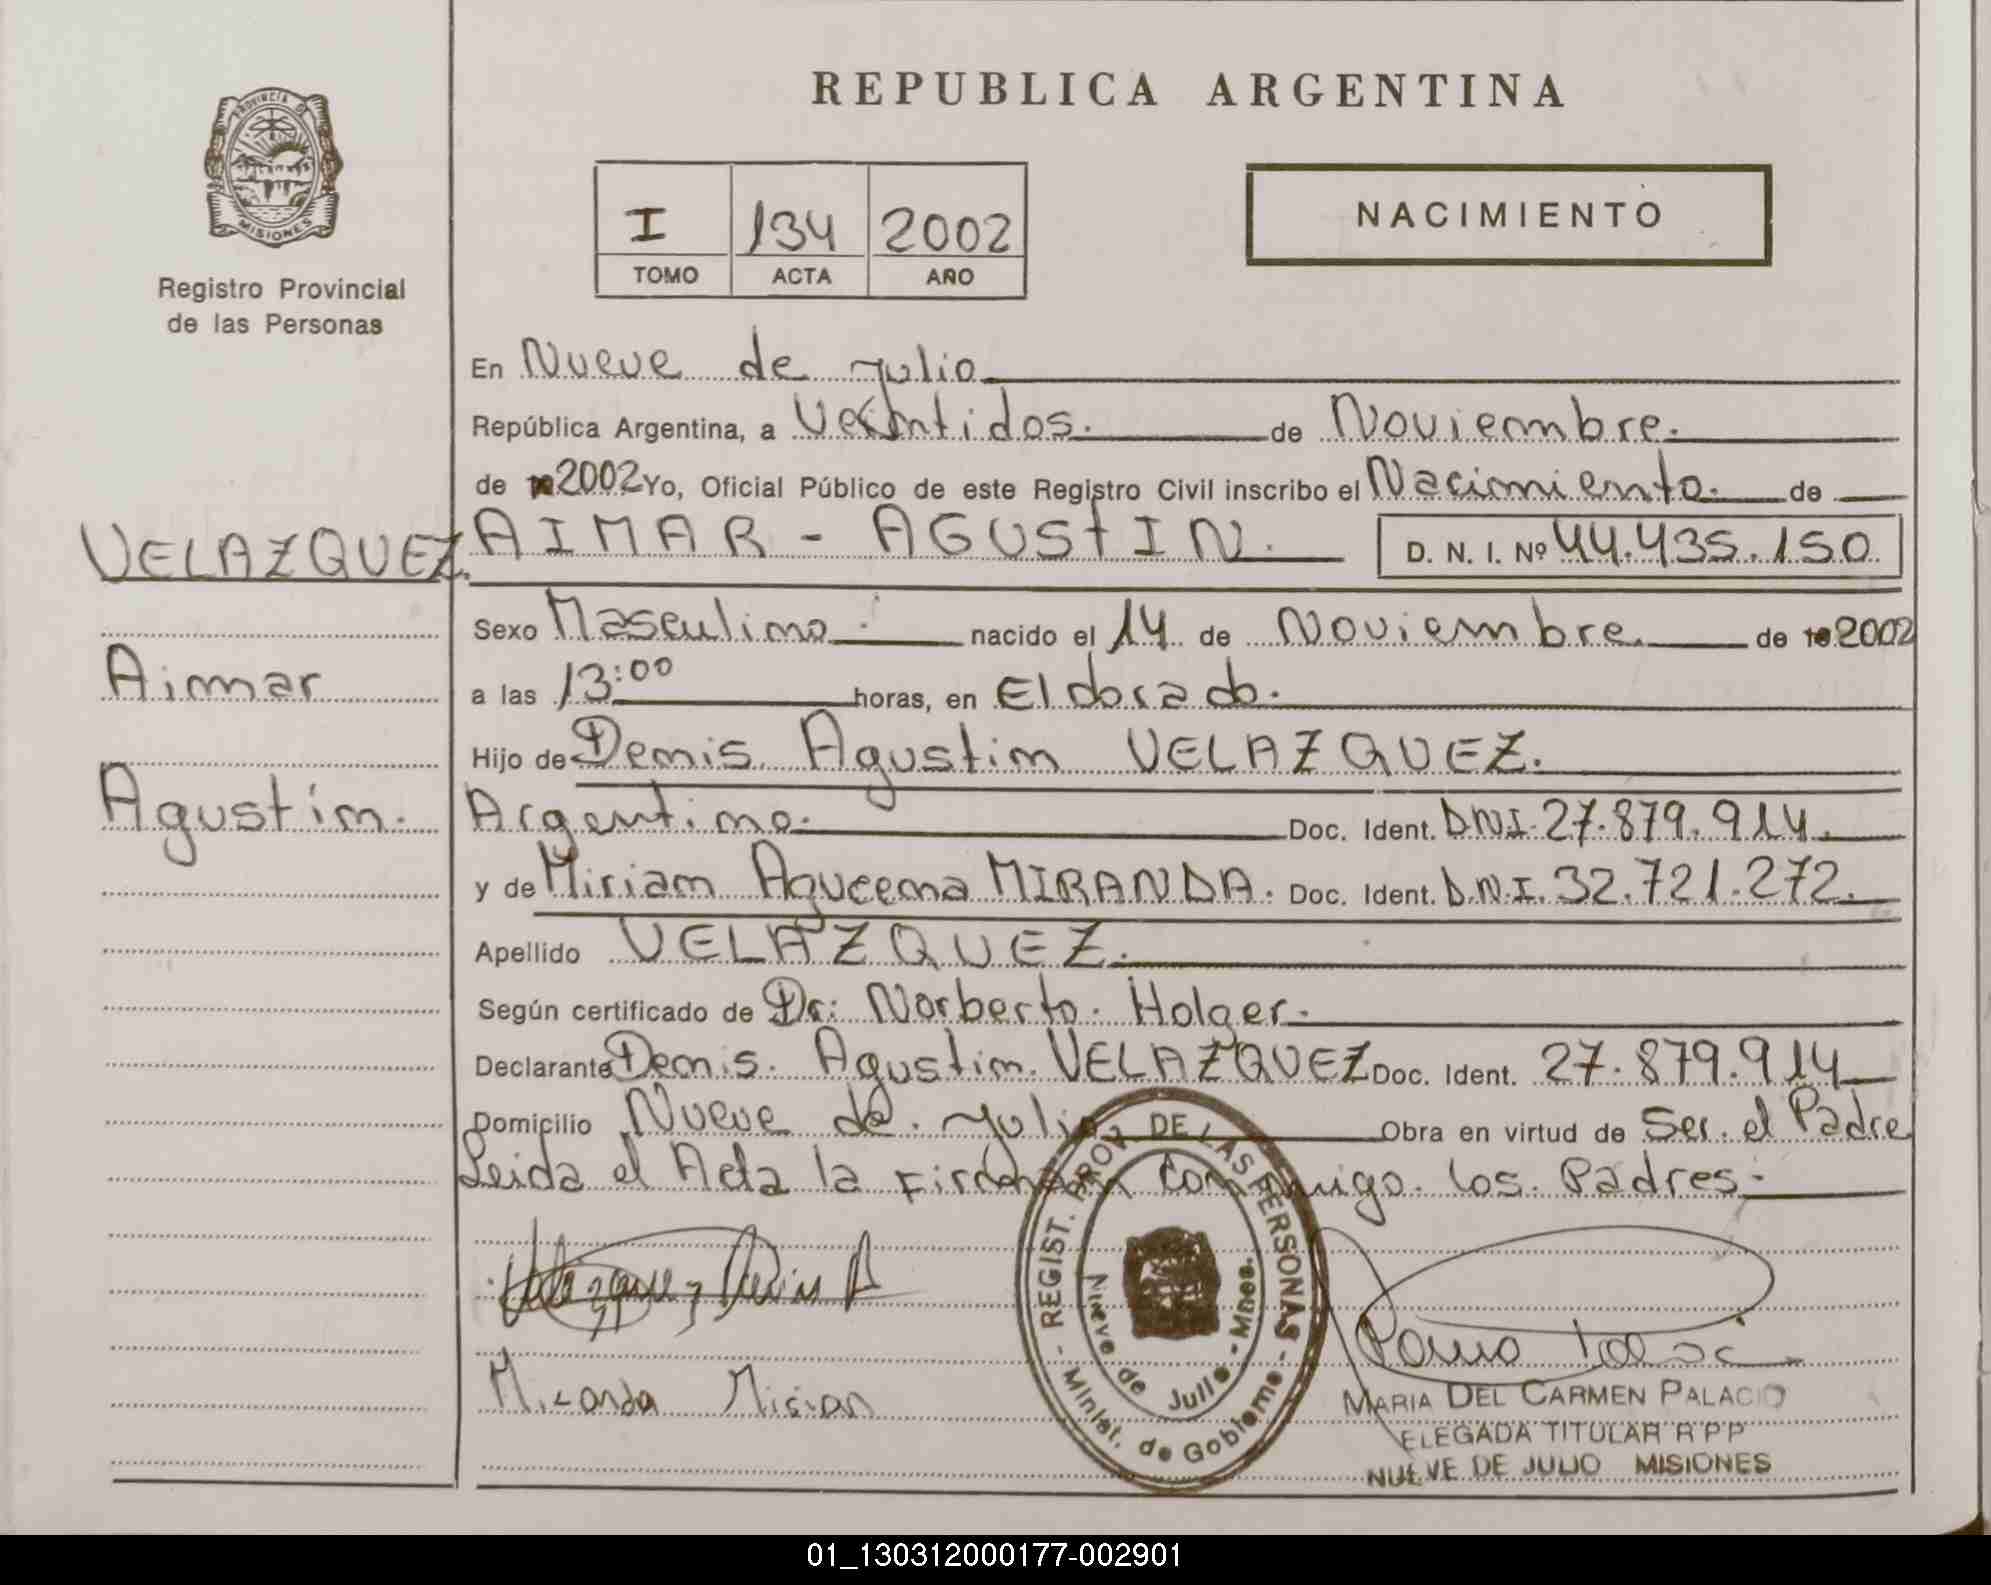 REPUBLICA ARGENTINA
PROVINCIA D
MISIONES
Registro Provincial
de las Personas
I 134 2002
TOMO ACTA AÑO
NACIMIENTO
En Nueve de Julio
República Argentina, a Veintidos. de Noviembre.
de 2002 Yo, Oficial Público de este Registro Civil inscribo el Nacimiento. de
VELAZQUEZ. AIMAR - AGUSTIN. D. N. I. Nº 44.435.150
Sexo Masculino nacido el 14 de Noviembre. de 2002
Aimar
a las 13:00 horas, en Eldorado.
Hijo de Denis Agustin VELAZQUEZ.
Agustin.
Argentino. Doc. Ident. DNI. 27.879.914.
y de Miriam MIRANDA. Doc. Ident. D.N.I. 32.721.272.
Apellido VELAZQUEZ.
Según certificado de Dr: Norberto. Holger.
Declarante Denis. Agustin. VELAZQUEZ Doc. Ident. 27.879.914
Domicilio Nueve de. Julio Obra en virtud de Ser. el Padre
Leida el Acta la Firman Conmigo. los. Padres.
REGIST. PROV. DE LAS PERSONAS - Minist. de Gobierno -
Nueve de Julio - Mnes.
Velazquez Denis A
Miranda Mirian
MARIA DEL CARMEN PALACIO
ELEGADA TITULAR R P P
NUEVE DE JULIO MISIONES
01_130312000177-002901